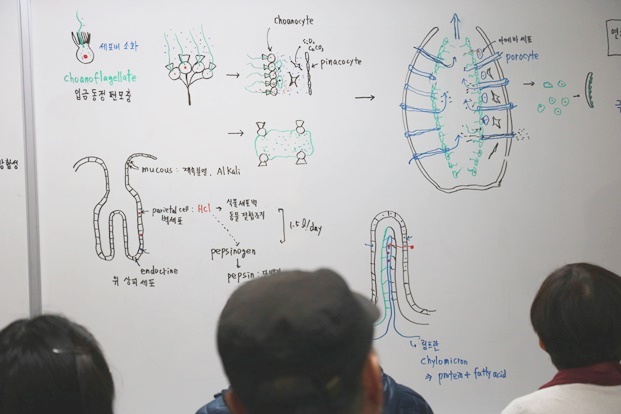 choanocyte
세포내 소화
SiO₂
CaCO₃
pinacocyte
아메바 세포
porocyte
choanoflagellate
입금 동정 편모충
mucous : 계속분열, Alkali
parietal cell : HCl → 식물세포벽
벽세포
동물 결합조직
1.5 l/day
pepsinogen
pepsin :
endocrine
위 상피 세포
림프관
chylomicron
⇒ protein + fatty acid